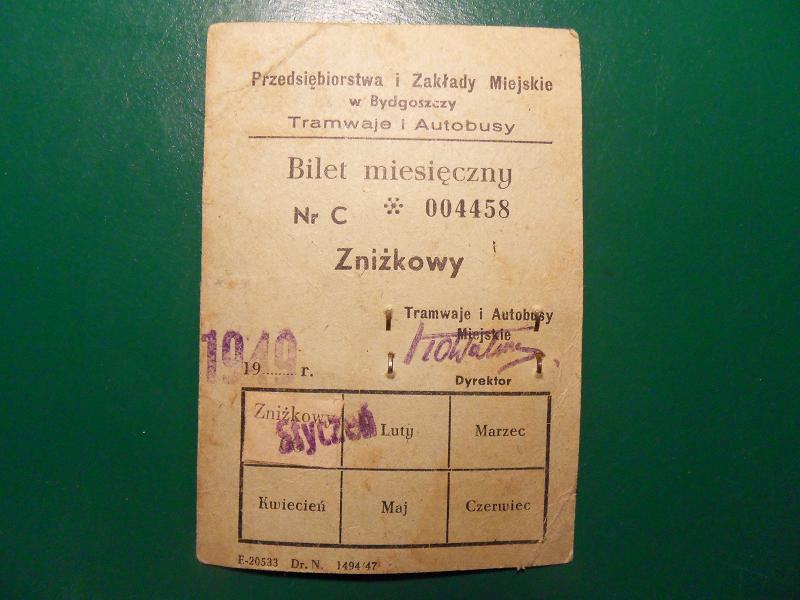 Przedsiębiorstwa i Zakłady Miejskie
w Bydgoszczy
Tramwaje i Autobusy
Bilet miesięczny
Nr C * 004458
Zniżkowy
Tramwaje i Autobusy
Miejskie
1949
19........ r.
Dyrektor
Zniżkowy
Styczeń
Luty
Marzec
Kwiecień
Maj
Czerwiec
F-20533 Dr. N. 1494/47